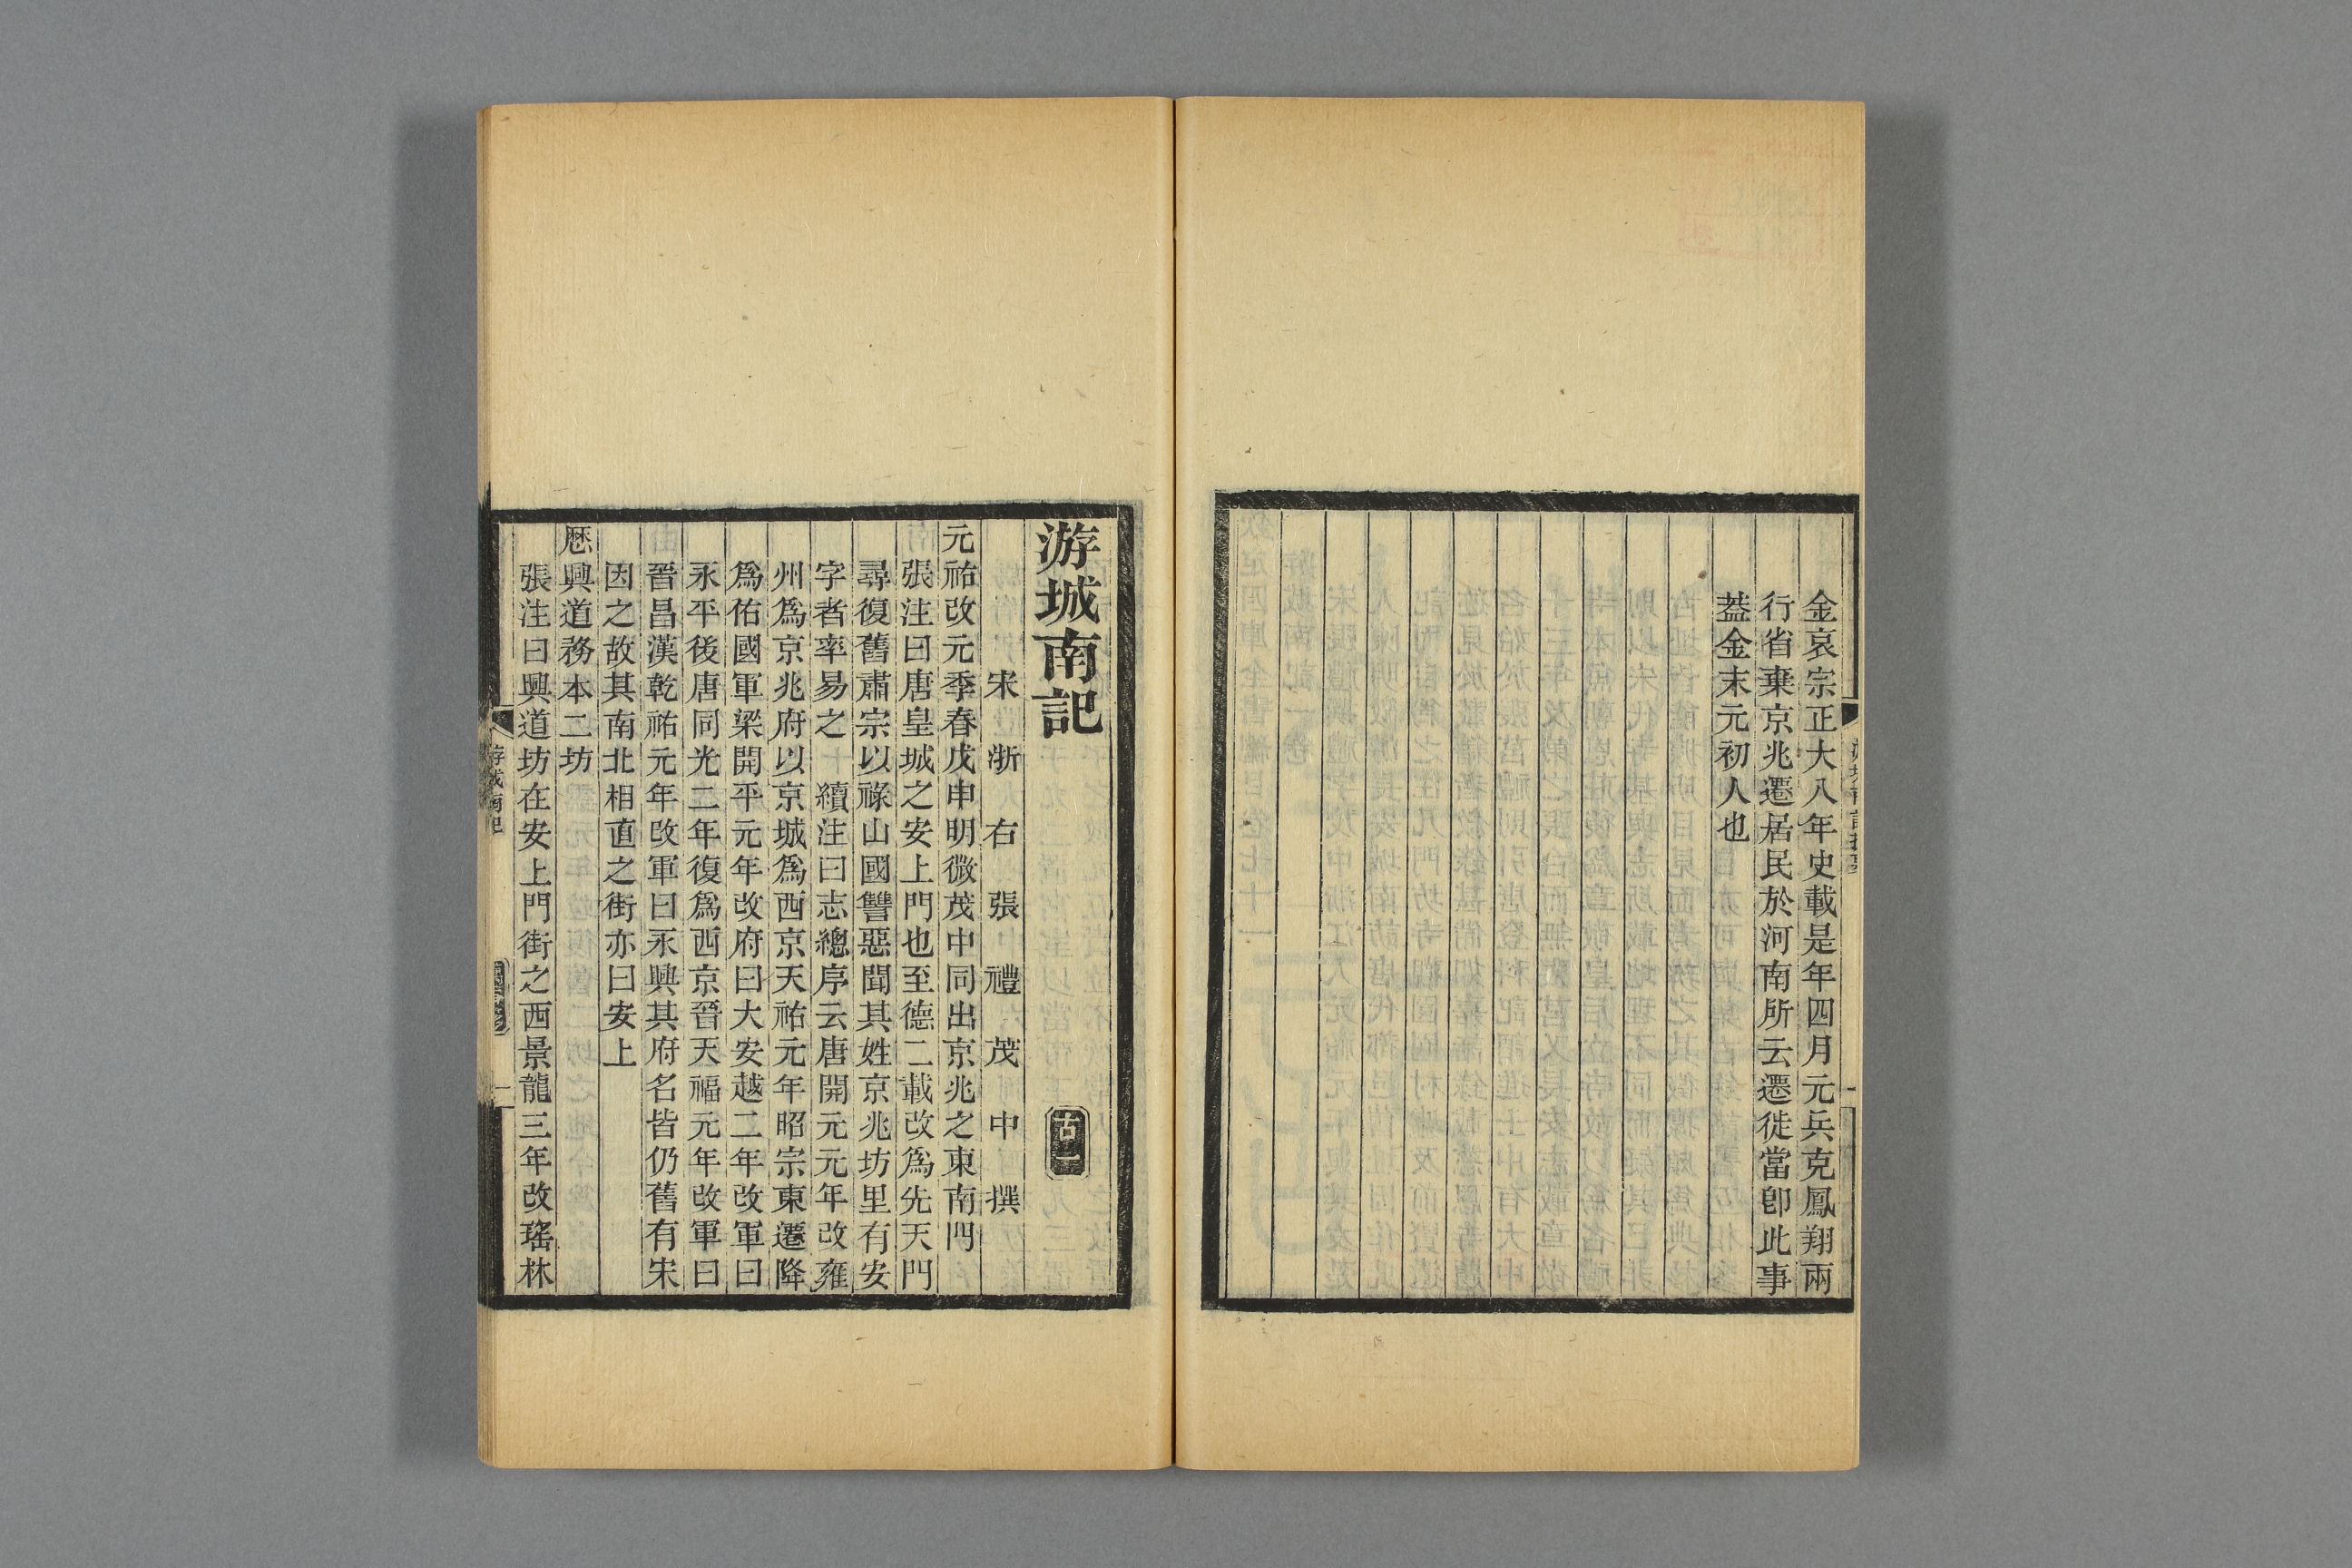 金哀宗正大八年史載是年四月元兵克鳳翔兩
行省棄京兆遷居民於河南所云遷徙當卽此事
葢金末元初人也
游城南記
宋浙右張禮茂中撰
元祐改元季春戊申明微茂中同出京兆之東南門
張注曰唐皇城之安上門也至德二載改爲先天門
尋復舊肅宗以祿山國讐惡聞其姓京兆坊里有安
字者率易之　續注曰志總序云唐開元元年改雍
州爲京兆府以京城爲西京天祐元年昭宗東遷降
爲佑國軍梁開平元年改府曰大安越二年改軍曰
永平後唐同光二年復爲西京晉天福元年改軍曰
晉昌漢乾祐元年改軍曰永興其府名皆仍舊有宋
因之故其南北相直之街亦曰安上
歷興道務本二坊
張注曰興道坊在安上門街之西景龍三年改瑤林
游城南記
一